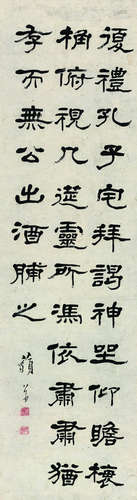 復禮孔子宅拜謁神坐仰瞻榱
桷俯視几筵靈所馮依肅肅猶
存而無公出酒脯之